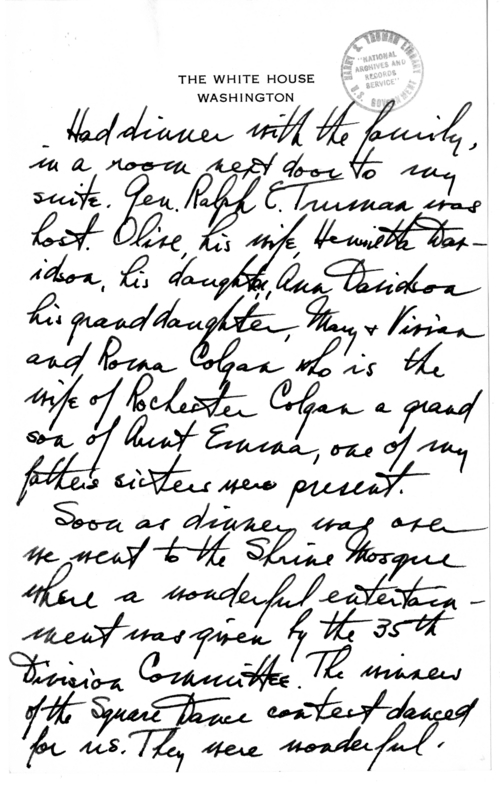 HARRY S. TRUMAN LIBRARY
"NATIONAL
ARCHIVES AND
RECORDS
SERVICE"
U.S. GOVERNMENT
THE WHITE HOUSE
WASHINGTON
Had dinner with the family,
in a room next door to my
suite. Gen. Ralph E. Truman was
host. Olive, his wife, Henrietta Dav-
idson, his daughter, Ann Davidson
his granddaughter, Mary & Vivian
and Roma Colgan who is the
wife of Rochester Colgan a grand
son of Aunt Emma, one of my
fathers sisters were present.
Soon as dinner was over
we went to the Shrine Mosque
where a wonderful entertain-
ment was given by the 35th
Division Committee. The winners
of the Square Dance contest danced
for us. They were wonderful.